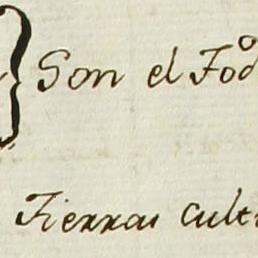 Son el Fod
Tierras cult